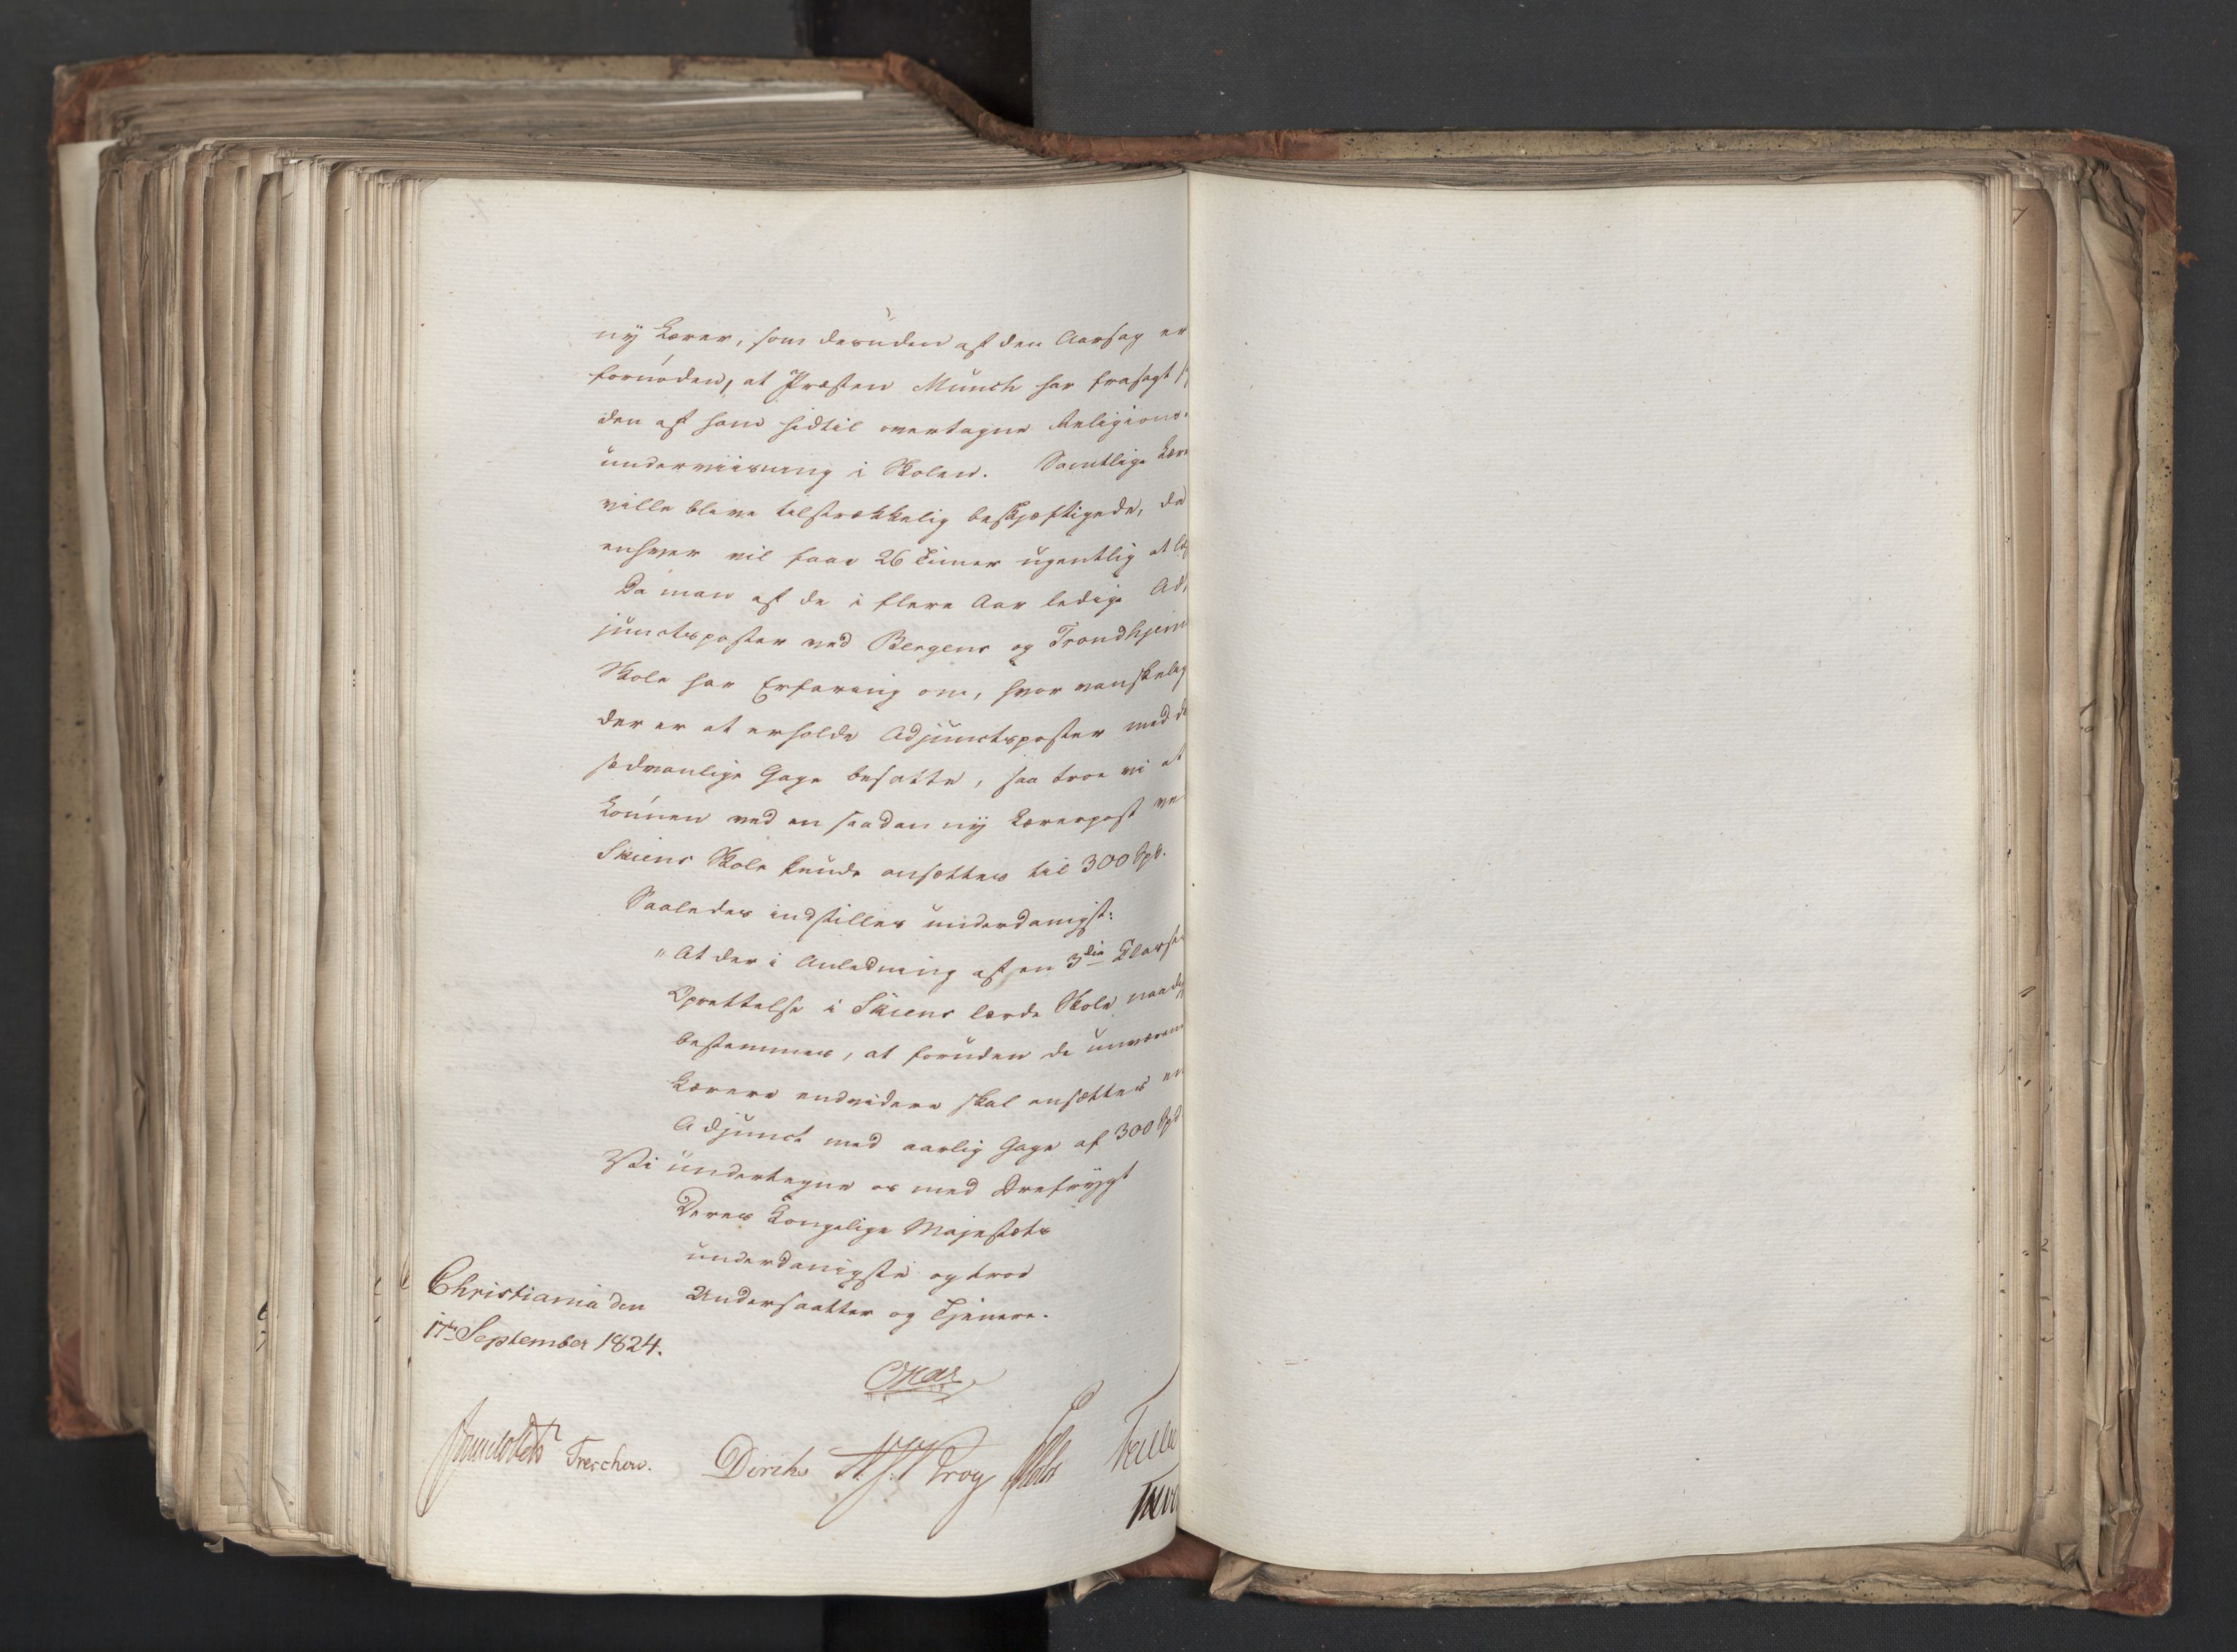 ny Lærer, som desuden af den Aarsag er
fornøden, at Præsten Munch har frasagt
den af ham hidtil overtagne Religions-
underviisning i Skolen. Samtlige Lære
ville blive tilstrækkelig beskjæftigede, da
enhver vil faae 26 Timer ugentlig at
Da man af de i flere Aar ledige Ad-
junctsposter ved Bergens og Trondhjem
Skole har Erfaring om, hvor vanskelig
der er at erholde Adjunctsposter med de
sædvanlige Gage besatte, saa troe vi at
Lønnen ved en saadan ny Lærerpost ve
Skiens Skole kunde ansættes til 300 Spd.
Saaledes indstilles underdanigst:
"At der i Anledning af en 3die Classes
Oprettelse i Skiens lærde Skole naadigst
bestemmes, at foruden de unværen
Lærere endvidere skal ansættes en
Adjunct med aarlig Gage af 300 Spd
Vi undertegne os med Ærefrygt
Deres Kongelige Majestæts
underdanigste og troe
Undersaatter og Tjenere.
Christiania den
17de September 1824.
Oscar
Sommerhielm Treschow. Diriks H. J. Krog